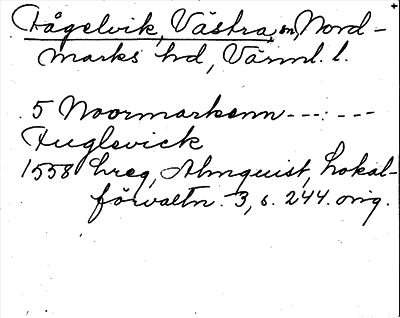 Fågelvik, Västra, sn, Nord-
marks hd, Värml. l.
5 Noormarkenn - - - : - - -
Fuglevick
1558 hreg, Almquist, Lokal-
förvaltn. 3, s. 244. orig.